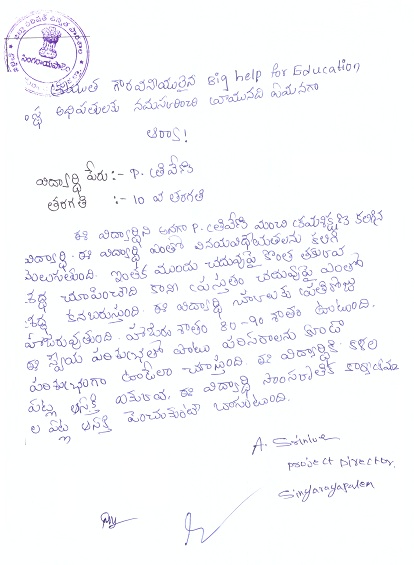 గౌరవనీయులైన Big help for Education
అధిపతులకు నమస్కరించి వ్రాయునది ఏమనగా
ఆర్యా!
విద్యార్థి పేరు :- P. త్రివేణి
తరగతి :- 10 వ తరగతి
ఈ విద్యార్థిని అనగా P. త్రివేణి మంచి క్రమశిక్షణ కలిగిన
విద్యార్థి. ఈ విద్యార్థి ఎంతో వినయవిధేయతలను కలిగి
మెలుగుతుంది. ఇంతక ముందు చదువుపై కొంత తక్కువ
శ్రద్ధ చూపించేది కానీ ప్రస్తుతం చదువుపై ఎంతో
శ్రద్ధ కనబరుస్తుంది. ఈ విద్యార్థి ప్రతిరోజు
హాజరువుతుంది. హాజరు శాతం 80-90 శాతం ఉంటుంది.
ఈ పరిశుభ్రతతో పాటు పరిసరాలను కూడా
పరిశుభ్రంగా ఉండేలా చూస్తుంది. ఈ విద్యార్థికి కళల
పట్ల ఆసక్తి ఎక్కువ. ఈ విద్యార్థి సాంస్కృతిక కార్యక్రమా
ల పట్ల ఆసక్తి పెంచుకుంటే బాగుంటుంది.
A. Srinive
project Director,
Singarayapalem